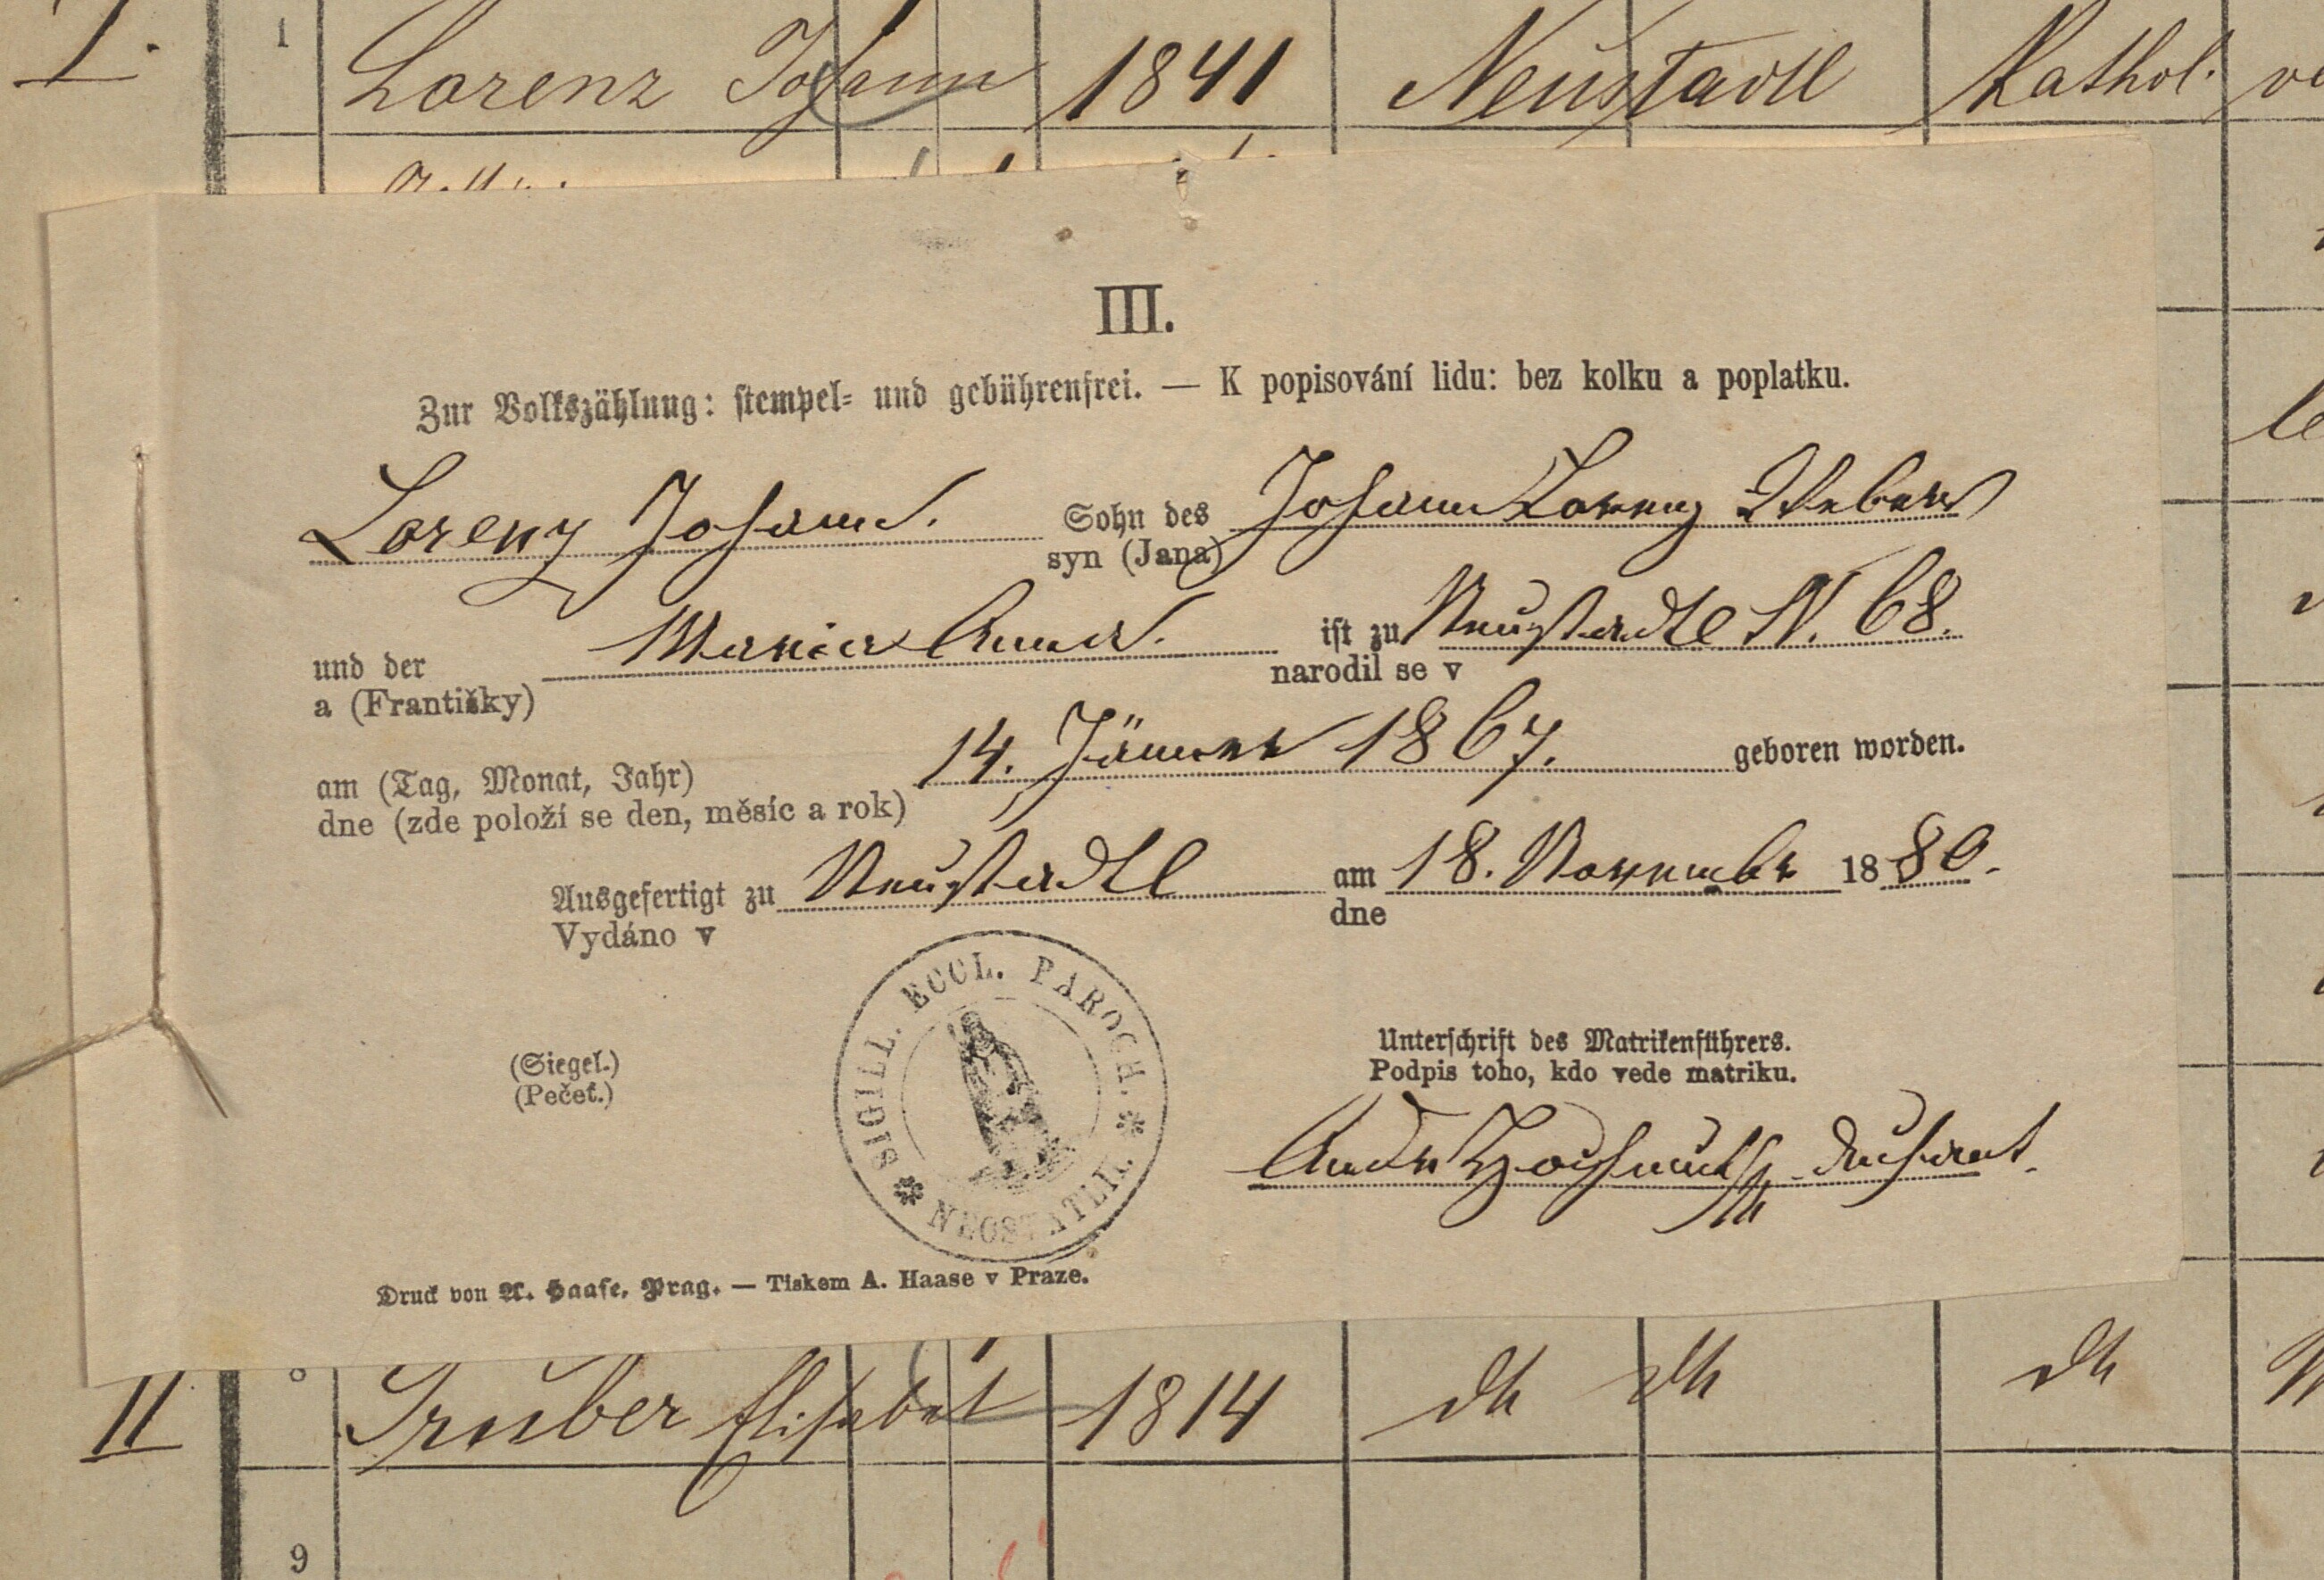 I.
1 Lorenz Johann 1841 Neustadtl Kathol.
III.
Zur Volkszählung: stempel- und gebührenfrei. — K popisování lidu: bez kolku a poplatku.
Lorenz Johann. Sohn des Johann Lorenz Weber
syn (Jana)
und der Maria Anna. ist zu Neustadtl N. 68.
a (Františky) narodil se v
am (Tag, Monat, Jahr) 14. Jänner 1867. geboren worden.
dne (zde položí se den, měsíc a rok)
Ausgefertigt zu Neustadtl am 18. November 1880.
Vydáno v dne
SIGILL. ECCL. PAROCH.
(Siegel.)
(Pečeť.)
Unterschrift des Matrikenführers.
Podpis toho, kdo vede matriku.
Druck von A. Haase, Prag. — Tiskem A. Haase v Praze.
II 8 Gruber Elisabet 1814
9